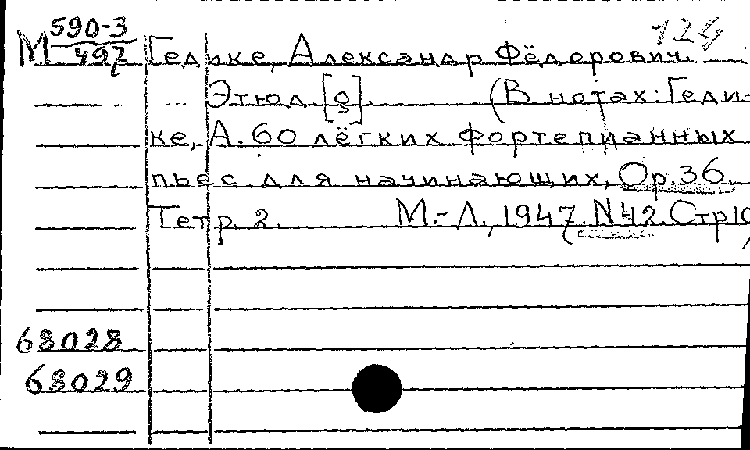 124
М 590-3/497 Гедике, Александр Фёдорович.
Этюд. (В нотах: Геди-
ке, А. 60 лёгких фортепианных
пьес для начинающих, Ор. 36.
Тетр. 2. М.-Л., 1947. N42. Стр10
68028
68029